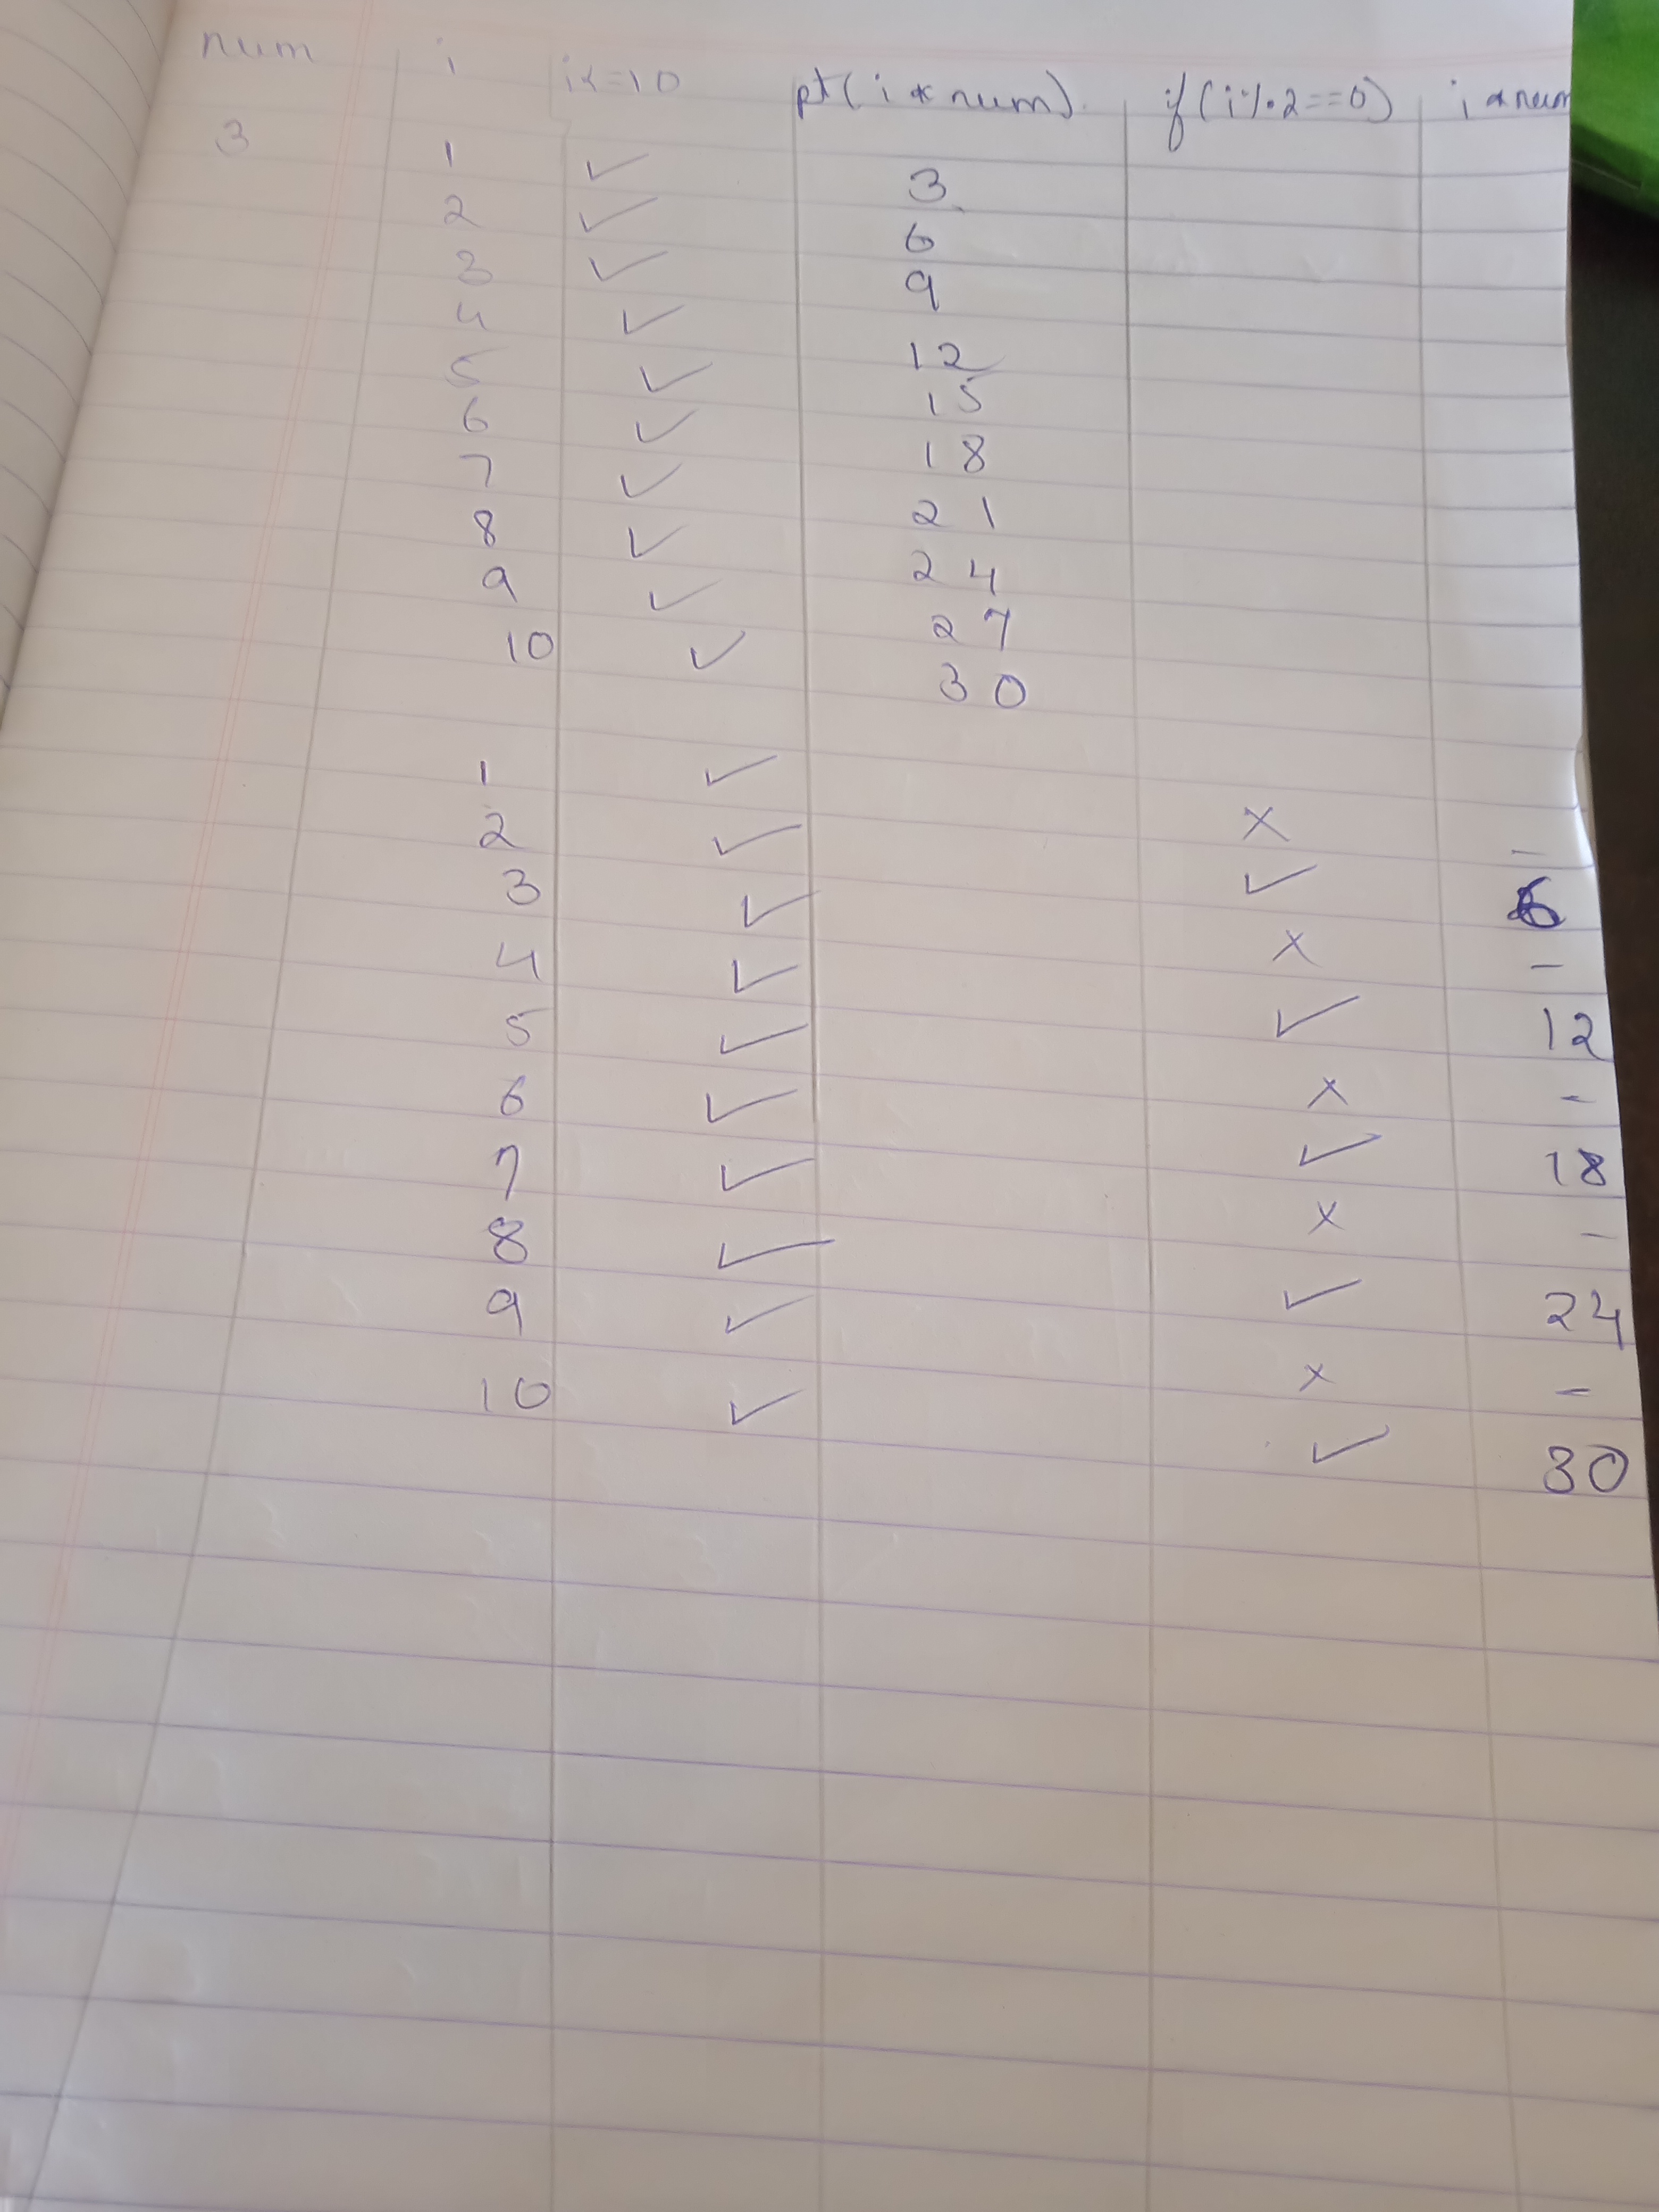 num i i<=10 pt(i*num) if(i%2==0) i*num
3 1 ✓ 3
2 ✓ 6
3 ✓ 9
4 ✓ 12
5 ✓ 15
6 ✓ 18
7 ✓ 21
8 ✓ 24
9 ✓ 27
10 ✓ 30
1 ✓ × –
2 ✓ ✓ 6
3 ✓ × –
4 ✓ ✓ 12
5 ✓ × –
6 ✓ ✓ 18
7 ✓ × –
8 ✓ ✓ 24
9 ✓ × –
10 ✓ ✓ 30